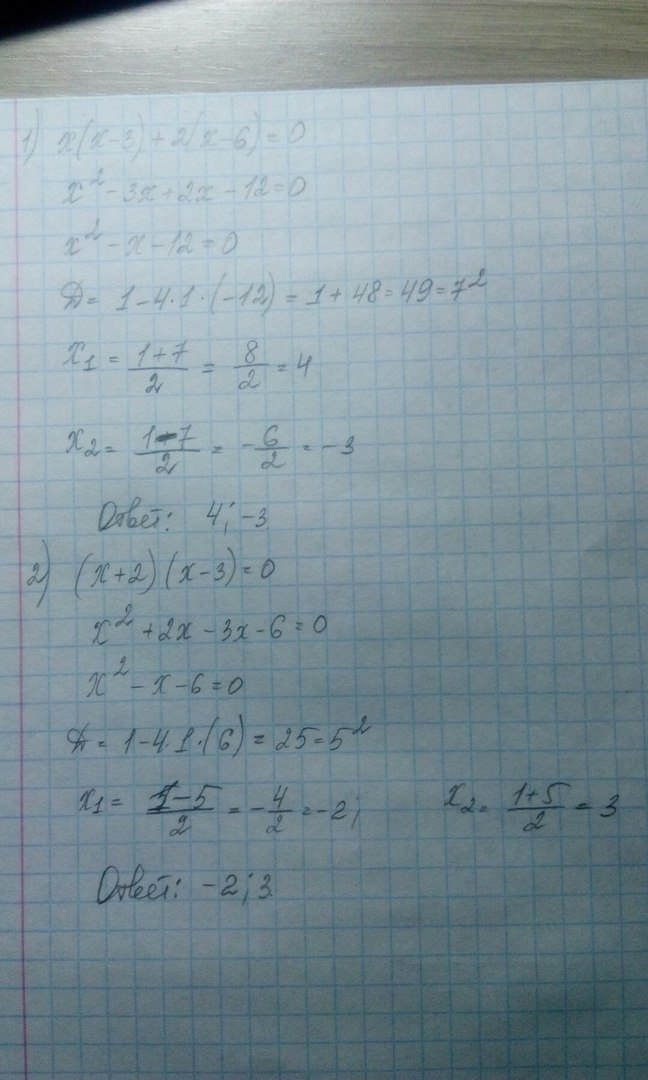 1) x(x-3)+2(x-6)=0
x²-3x+2x-12=0
x²-x-12=0
Д= 1-4·1·(-12)=1+48=49=7²
x₁ = (1+7)/2 = 8/2 = 4
x₂ = (1-7)/2 = -6/2 = -3
Ответ: 4; -3.
2) (x+2)(x-3)=0
x²+2x-3x-6=0
x²-x-6=0
Д= 1-4·1·(6) = 25=5²
x₁ = (1-5)/2 = -4/2 = -2; x₂ = (1+5)/2 = 3
Ответ: -2; 3.